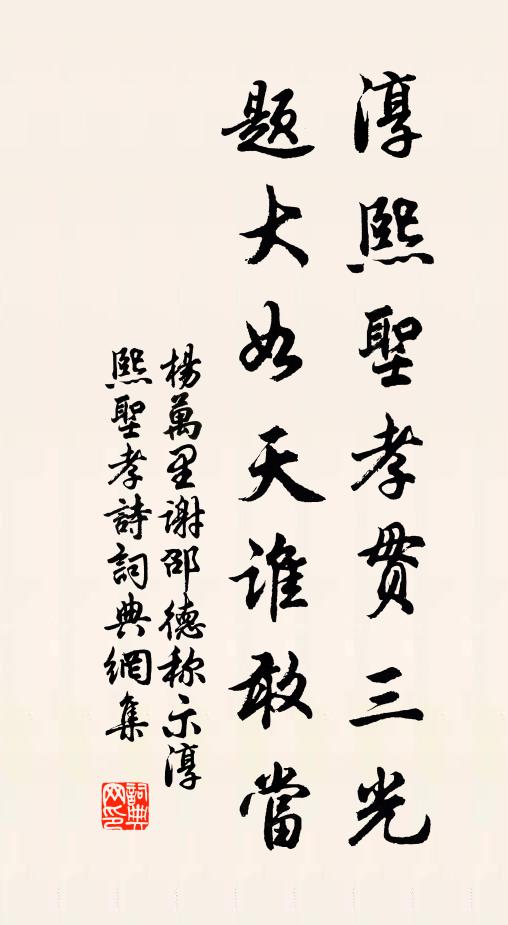 淳熙聖孝貫三光
題大如天誰敢當
楊萬里謝邵德称示淳
熙聖孝詩詞典網集
詞典
网印